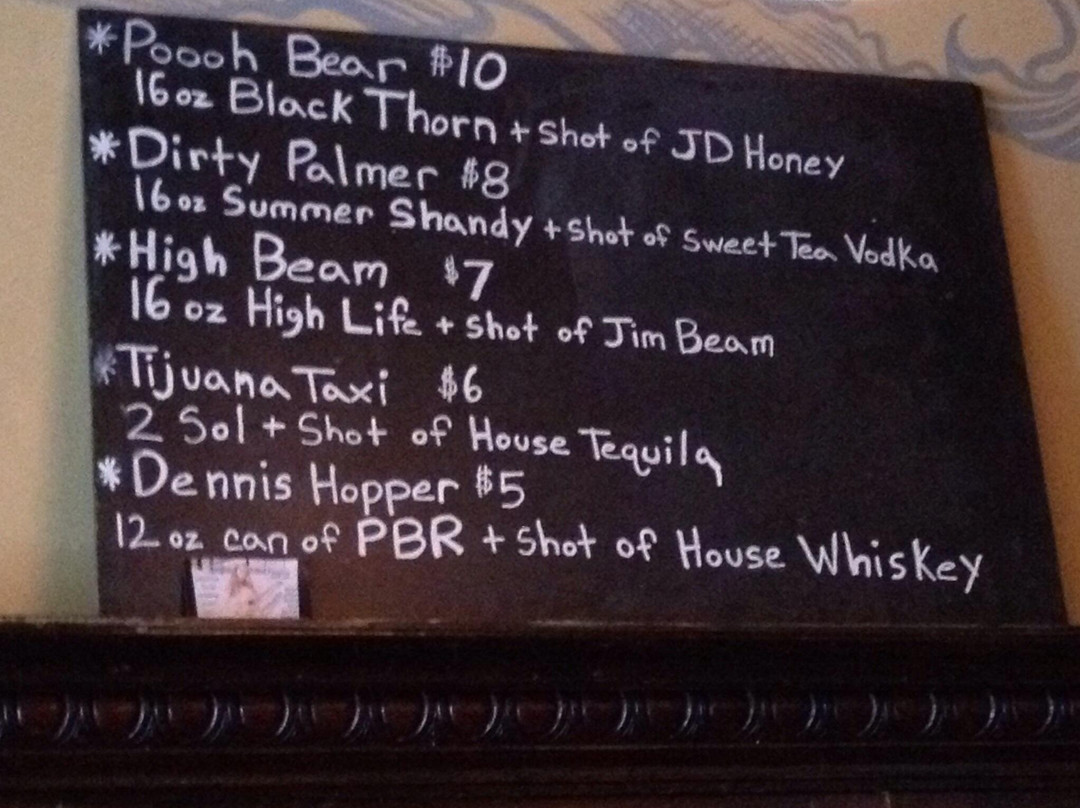 *Poooh Bear $10
16oz Black Thorn + Shot of JD Honey
*Dirty Palmer $8
16oz Summer Shandy + Shot of Sweet Tea Vodka
*High Beam $7
16 oz High Life + Shot of Jim Beam
*Tijuana Taxi $6
2 Sol + Shot of House Tequila
*Dennis Hopper $5
12 oz can of PBR + Shot of House Whiskey